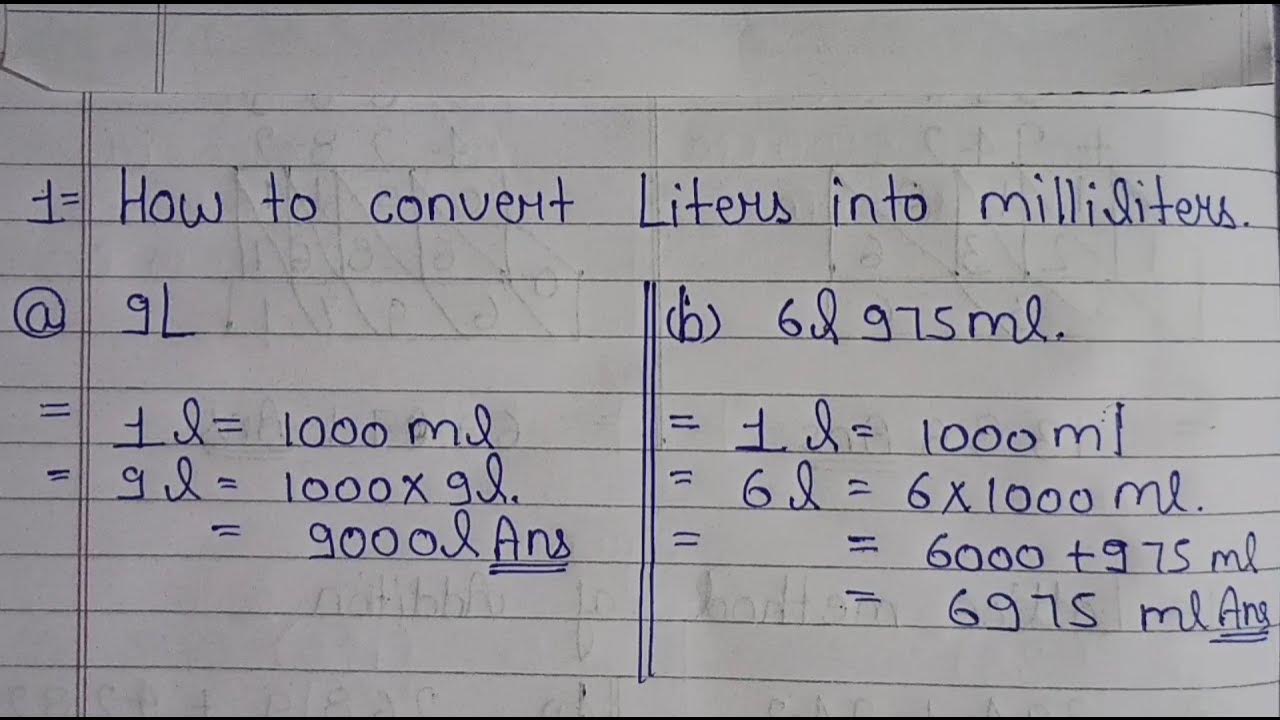 1= How to convert Liters into milliliters.
@ 9L
= 1l = 1000 ml
= 9l = 1000 x 9l.
= 9000l Ans
(b) 6l 975ml.
= 1l = 1000 ml
= 6l = 6 x 1000 ml.
= = 6000 + 975 ml
= 6975 ml Ans